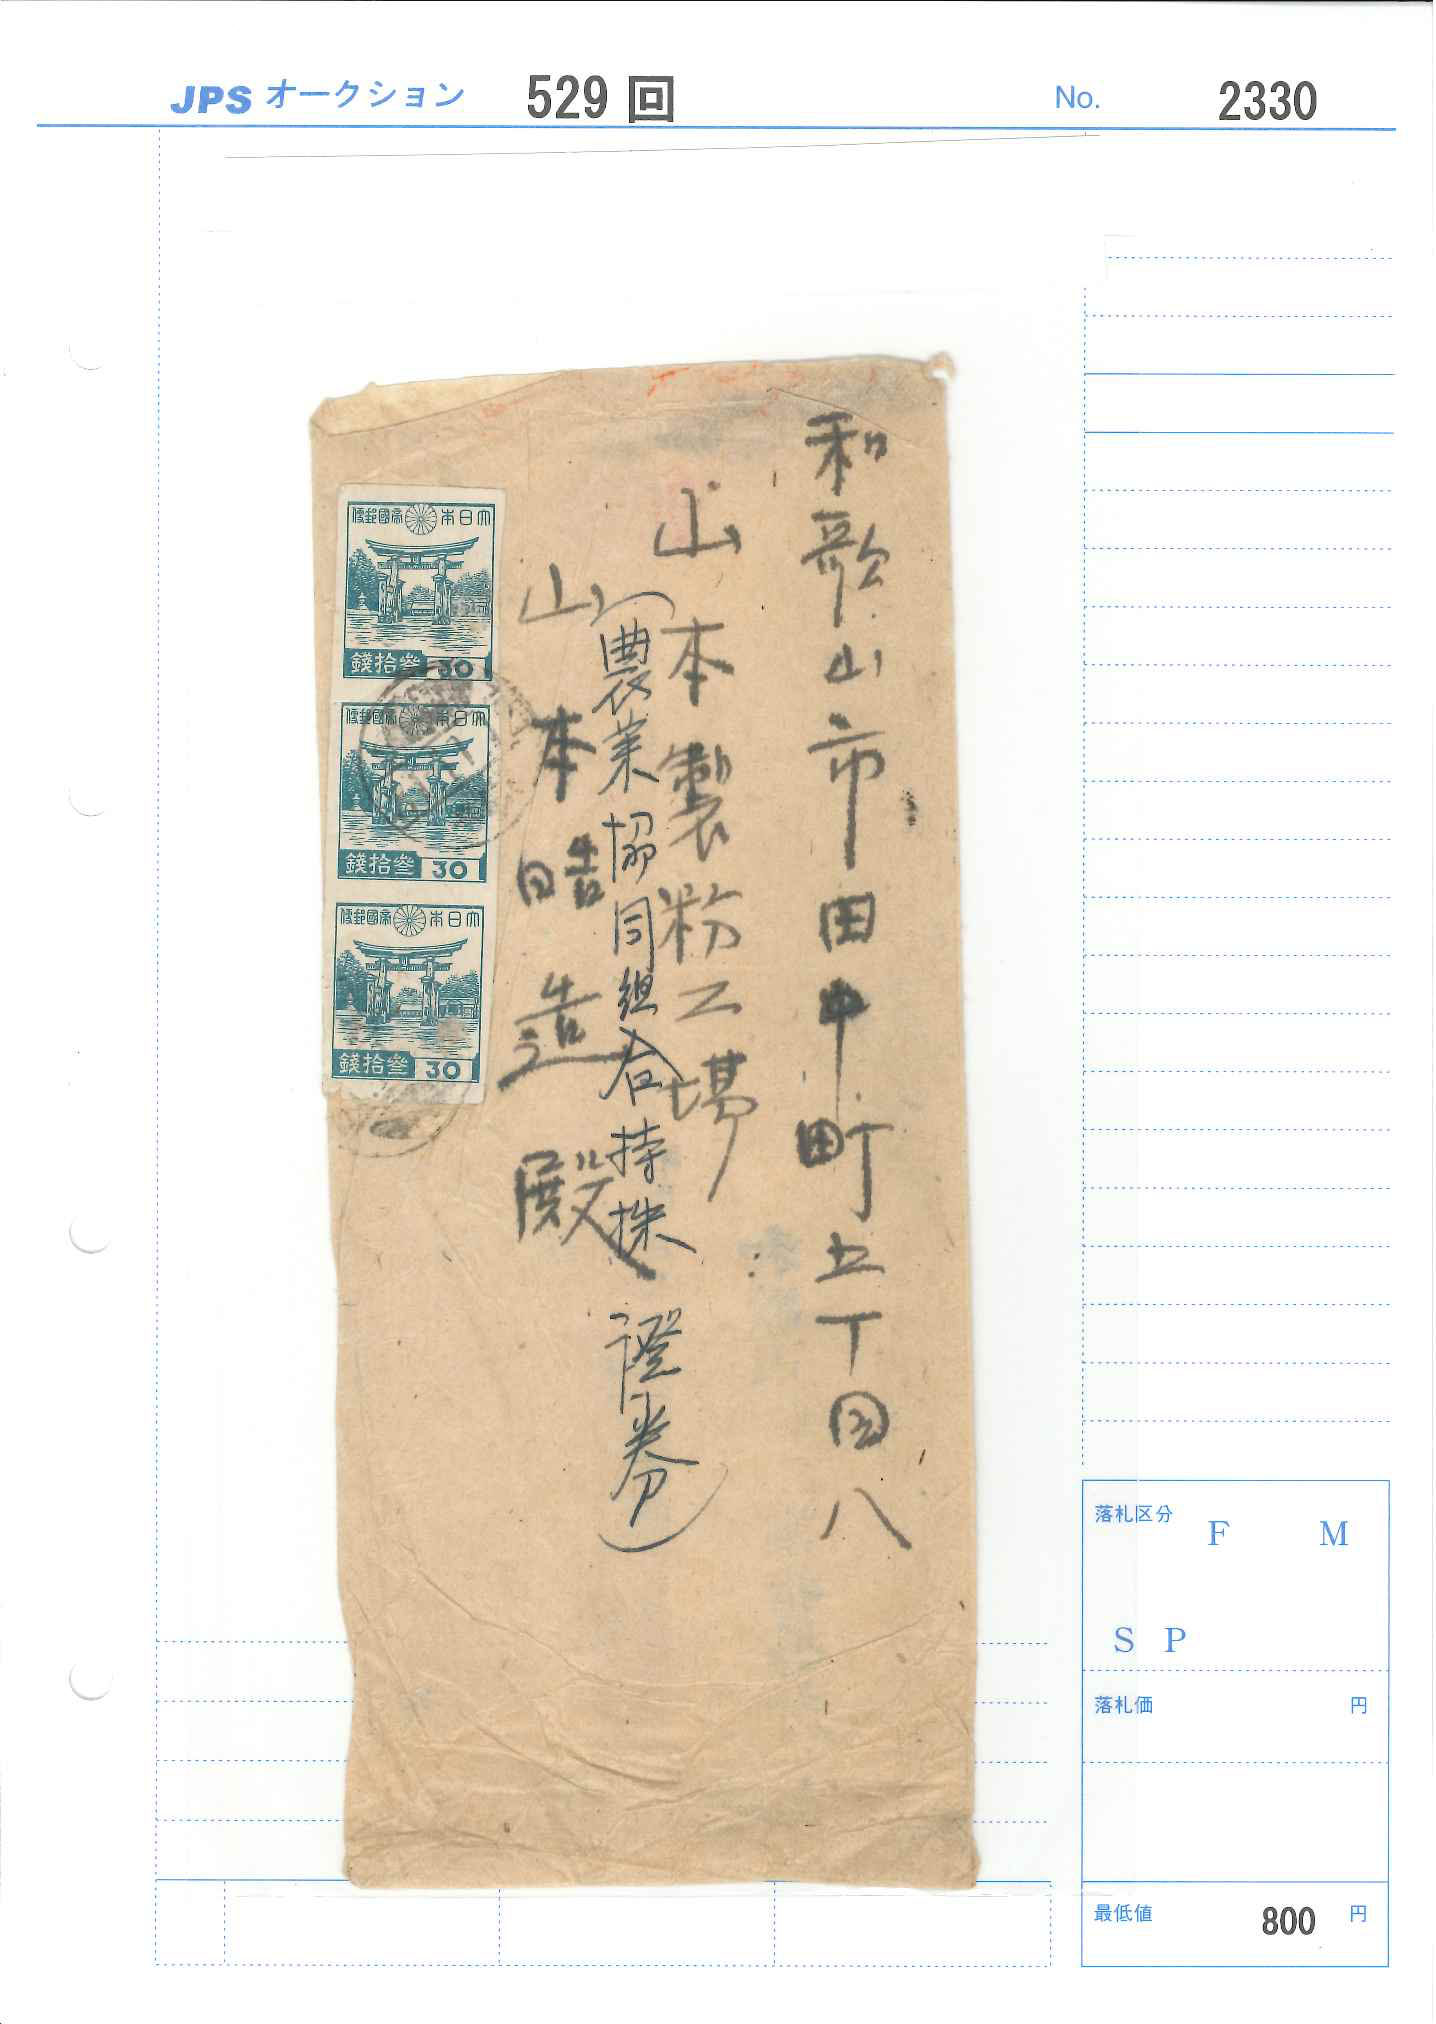 JPS オークション 529 回 No. 2330
和歌山市田中町五丁目八
山本製粉工場
(農業協同組合持株證券)
山本晧造殿
大日本帝國郵便
参拾錢 30
大日本帝國郵便
参拾錢 30
大日本帝國郵便
参拾錢 30
落札区分 F M
S P
落札価 円
最低値 800 円